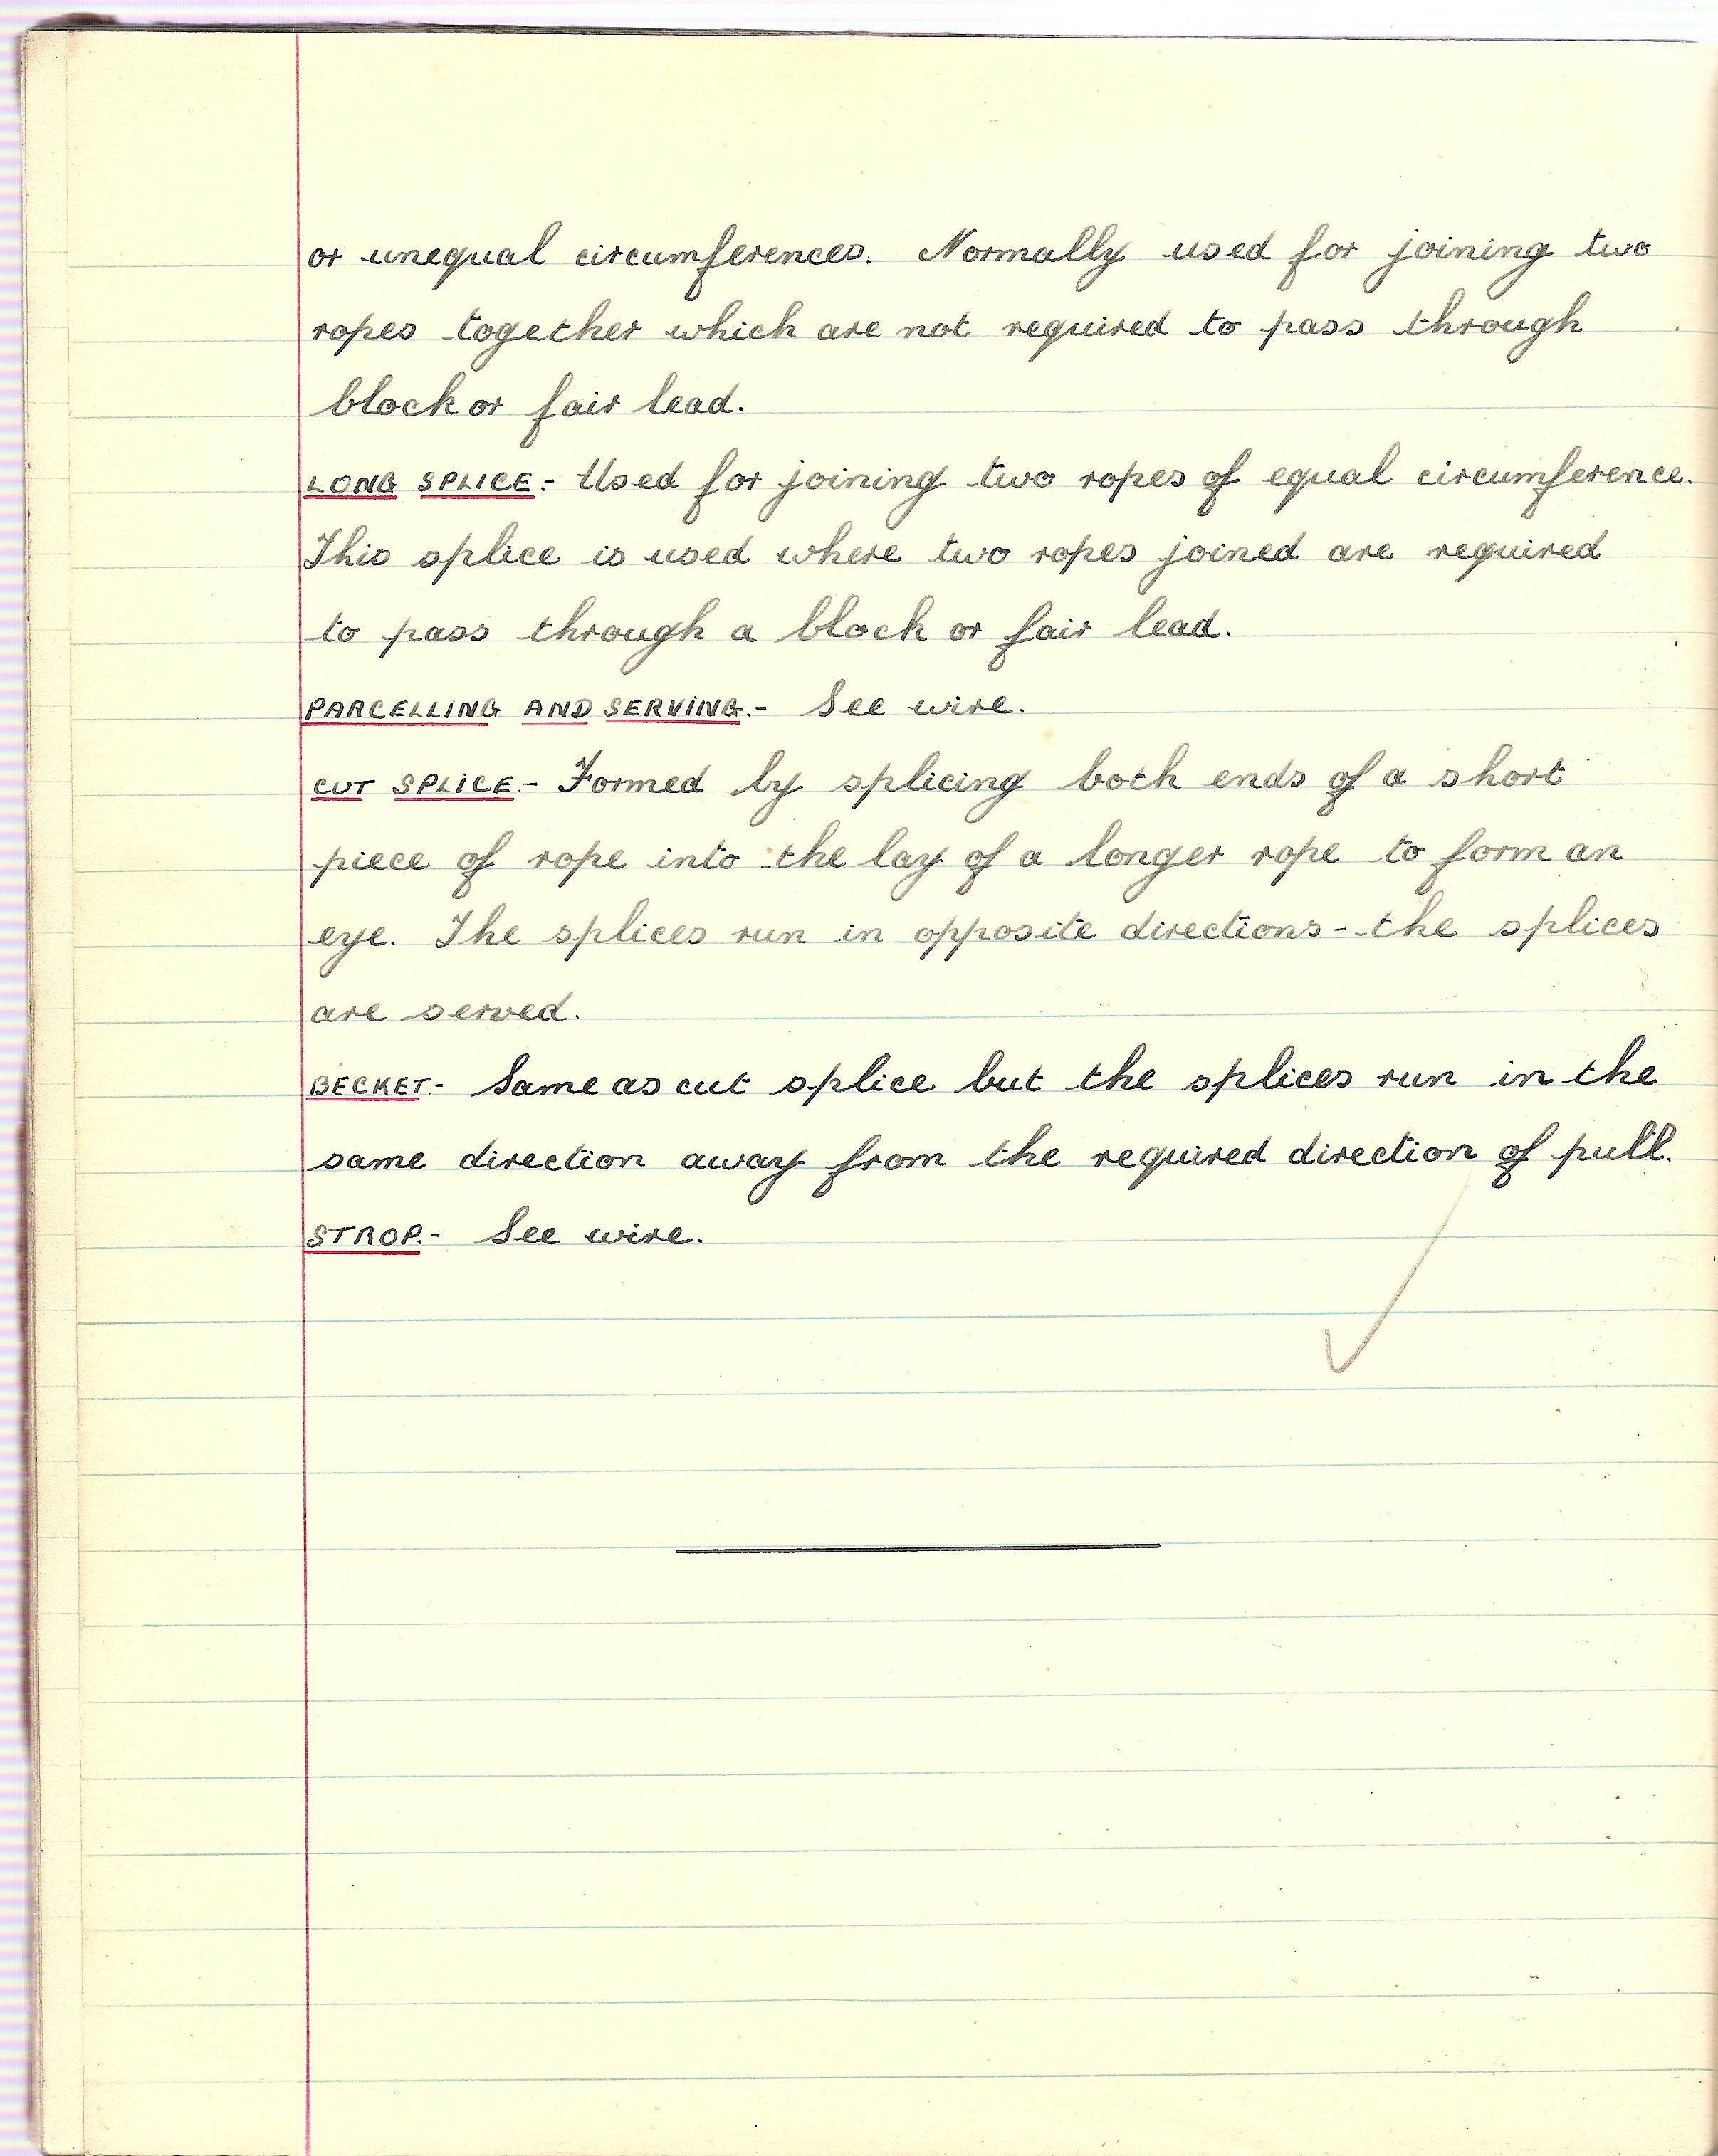 or unequal circumferences. Normally used for joining two
ropes together which are not required to pass through
block or fair lead.
LONG SPLICE.- Used for joining two ropes of equal circumference.
This splice is used where two ropes joined are required
to pass through a block or fair lead.
PARCELLING AND SERVING.- See wire.
CUT SPLICE.- Formed by splicing both ends of a short
piece of rope into the lay of a longer rope to form an
eye. The splices run in opposite directions - the splices
are served.
BECKET.- Same as cut splice but the splices run in the
same direction away from the required direction of pull.
STROP.- See wire.